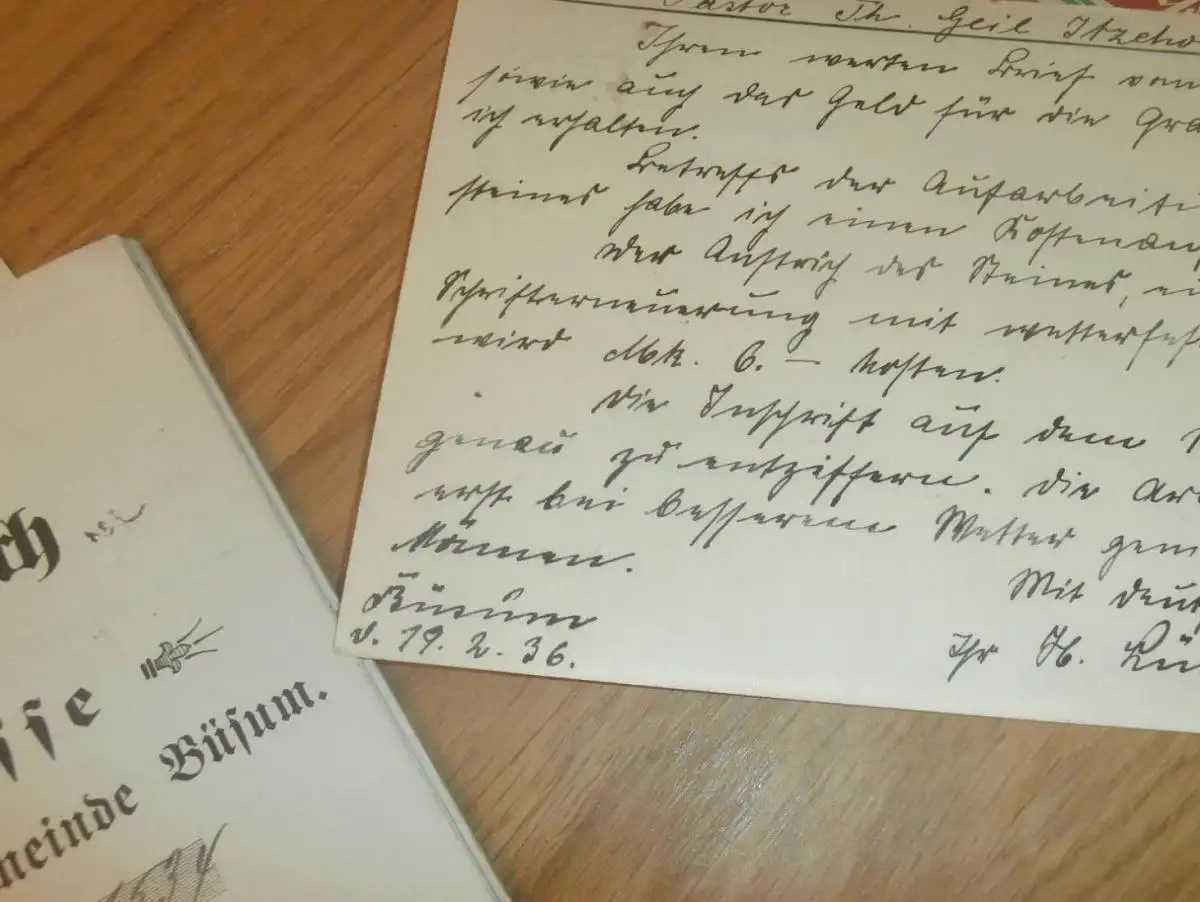 Pastor Th. Geil Itzeho
Ihren werten Brief vom
sowie auch das Geld für die Gra
ich erhalten.
Betreffs der Aufarbeit
steines habe ich einen Kostenan
Der Anstrich des Steines, ei
Schrifterneuerung mit wetterfes
wird Mk. 6.— kosten.
Die Inschrift auf dem
genau zu entziffern. Die Ar
erst bei besserem Wetter gem
können.
Büsum
d. 19. 2. 36.
Mit deut
Ihr H. Lü
ch
sse
meinde Büsum.
1534